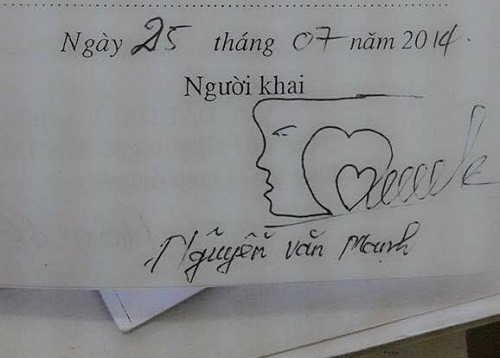 Ngày 25 tháng 07 năm 2014.
Người khai
Nguyễn Văn Mạnh